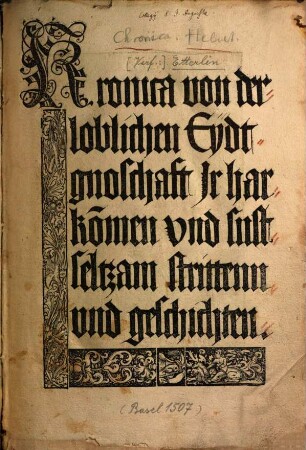 Chronica. Helvet.
[Verf.] Etterlin
Kronica von der
loblichen Eydt
gnoschaft Jr har
kōmen vnd sust
seltzam strittenn
vnd geschichten.
(Basel 1507)